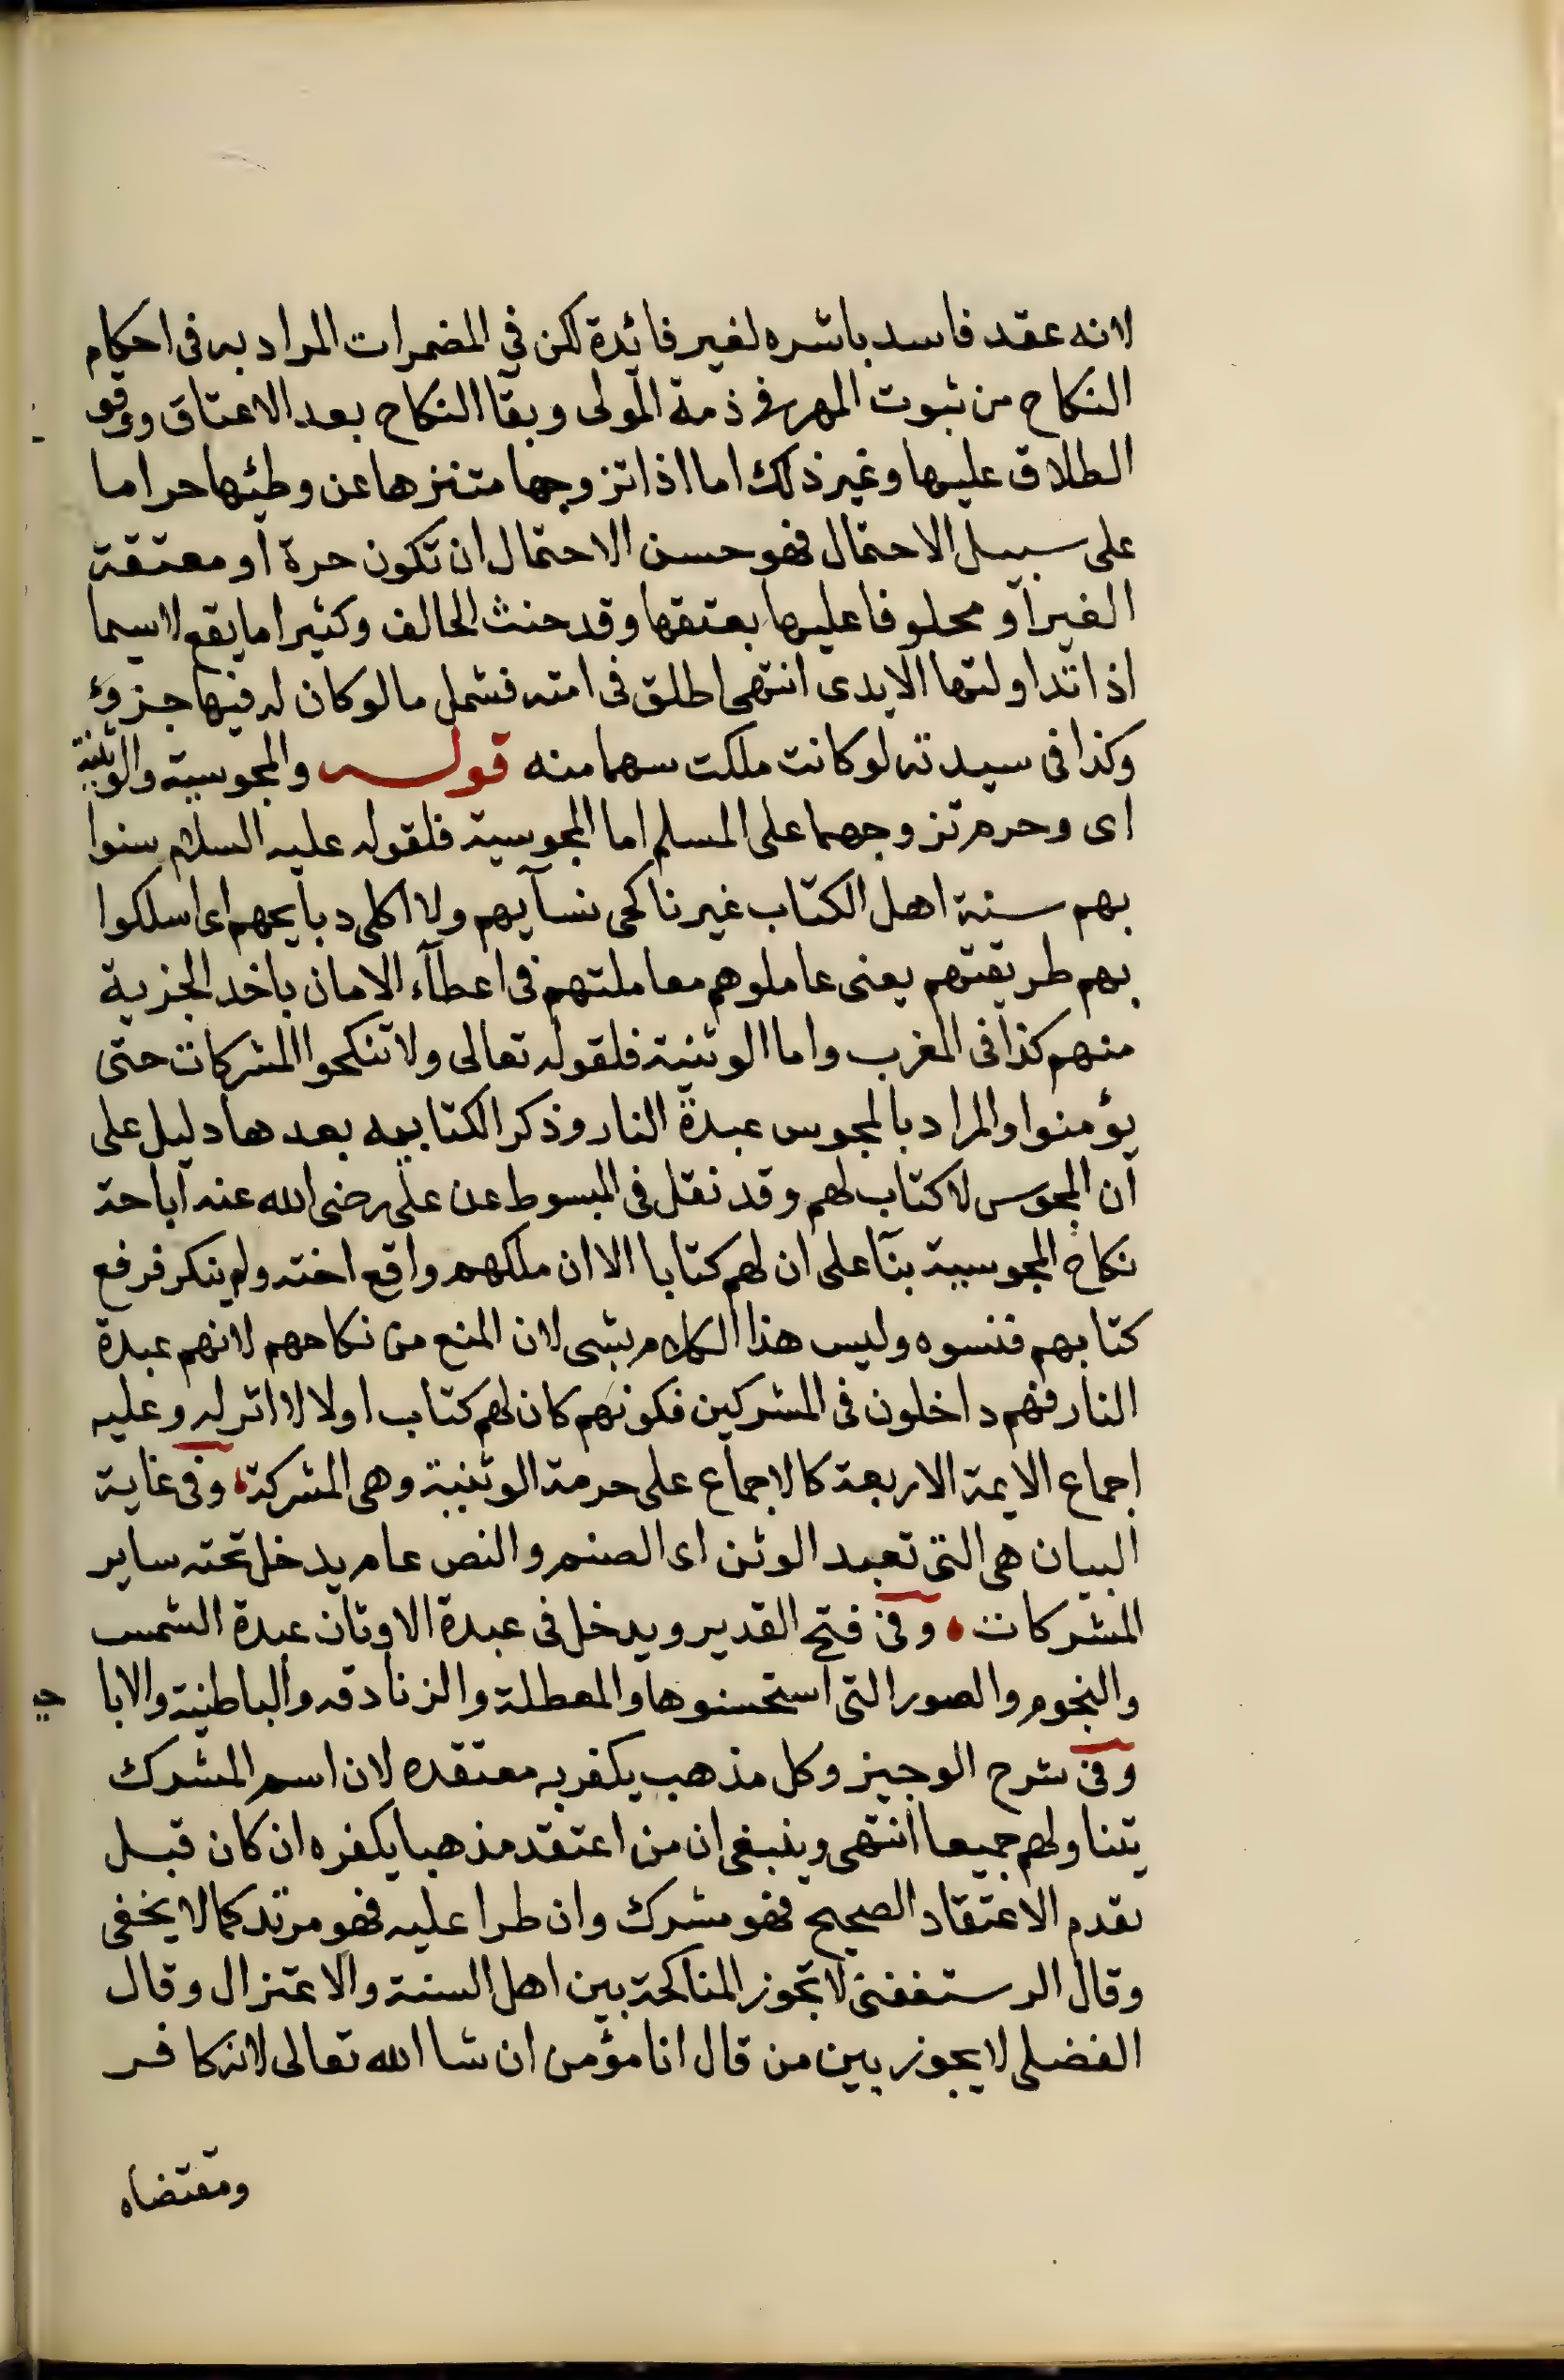 لانه عقد فاسد باشره لغير فائدة لكن في المضمرات المراد به فى احكام
النكاح من ثبوت المهر فى ذمة المولى وبقآ النكاح بعد الاعتاق ووقو
الطلاق عليها وغير ذلك اما اذا تزوجها متنزها عن وطئها حراما
على سبيل الاحتمال فهو حسن الاحتمال ان تكون حرة او معتقة
الغير او محلوفا عليها بعتقها وقد حنث الحالف وكثيرا ما يقع لا سيما
اذا تداولتها الايدى انتهى اطلق فى امته فشمل ما لو كان له فيها جزؤ
وكذا فى سيدته لو كانت ملكت سهما منه قوله والمجوسية والوثنية
اى وحرم تزوجهما على المسلم اما المجوسية فلقوله عليه السلام سنوا
بهم سنة اهل الكتاب غير ناكحى نسآيهم ولا اكلى دبايحهم اى اسلكوا
بهم طريقتهم يعنى عاملوهم معاملتهم فى اعطآء الامان باخد الجزية
منهم كذا فى المغرب واما الوثنية فلقوله تعالى ولا تنكحوا المشركات حتى
يؤمنوا والمراد بالمجوس عبدة النار وذكر الكتابيه بعدها دليل على
ان المجوس لا كتاب لهم وقد نقل فى المبسوط عن على رضى الله عنه اباحة
نكاح المجوسية بنآ على ان لهم كتابا الا ان ملكهم واقع اخته ولم ينكر فرفع
كتابهم فنسوه وليس هذا الكلام بشى لان المنع من نكاحهم لانهم عبدة
النار فهم داخلون فى المشركين فكونهم كان لهم كتاب اولا لا اثر له وعليه
اجماع الايمة الاربعة كالاجماع على حرمة الوثنية وهى المشركة وفى غاية
البيان هى التى تعبد الوثن اى الصنم والنص عام يدخل تحته ساير
المشركات وفى فتح القدير ويدخل فى عبدة الاوثان عبدة الشمس
والنجوم والصور التى استحسنوها والمعطلة والزنادقه والباطنية والابا حيه
وفى شرح الوجيز وكل مذهب يكفر به معتقده لان اسم المشرك
يتناولهم جميعا انتهى وينبغى ان من اعتقد مذهبا يكفره ان كان قبل
تقدم الاعتقاد الصحيح فهو مشرك وان طرا عليه فهو مرتد كما لا يخفى
وقال الرستغفنى لا تجوز المناكحة بين اهل السنة والاعتزال وقال
الفضلى لا يجوز بين من قال انا مؤمن ان شا الله تعالى لانه كافر
ومقتضاه